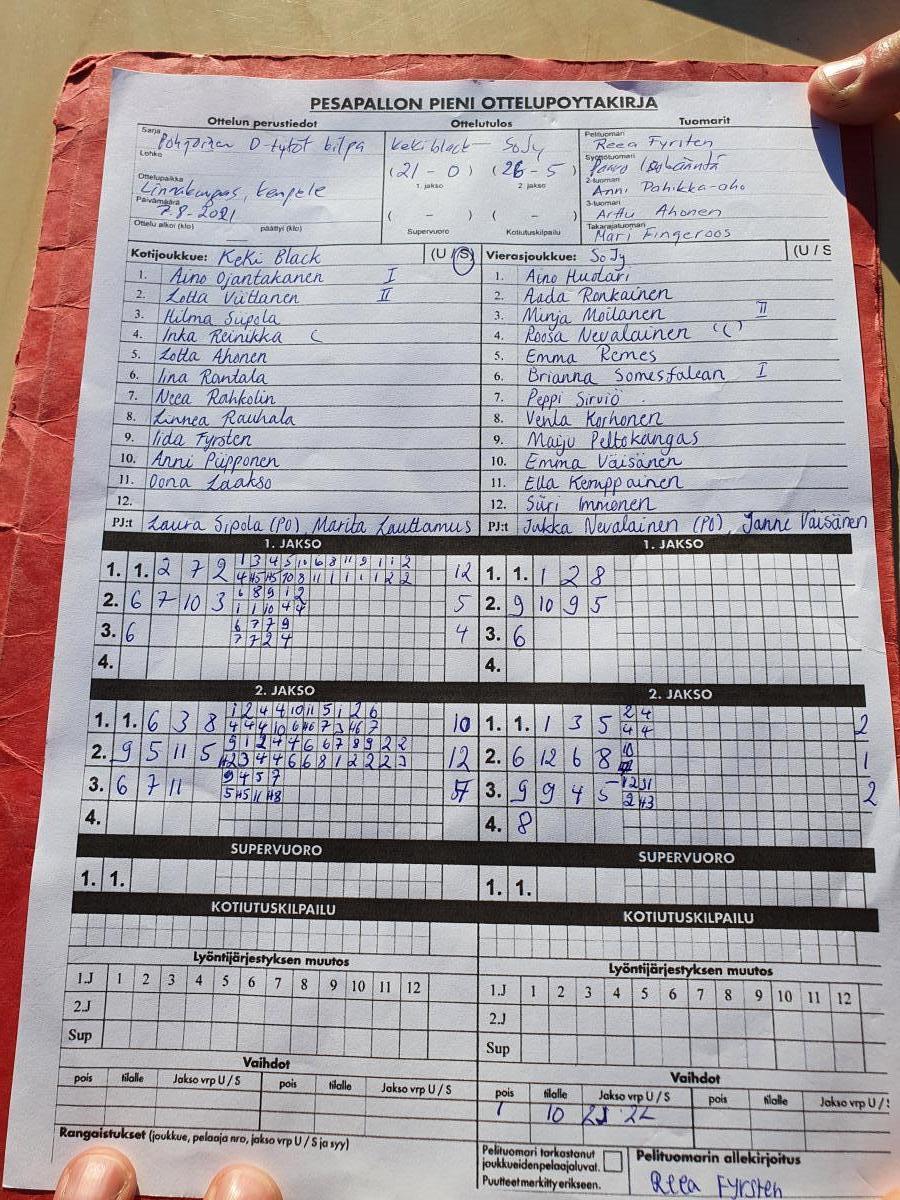 PESAPALLON PIENI OTTELUPOYTAKIRJA
Ottelun perustiedot
Ottelutulos
Tuomarit
Sarja Pohjoinen D-tytöt kilpa
Lohko
Ottelupaikka
Linnakangas, Kempele
Päivämäärä
7.8-2021
Ottelu alkoi (klo) päättyi (klo)
KeKi black — SoJy
(21 - 0) (26 - 5)
1. jakso 2. jakso
( - ) ( - )
Supervuoro Kotiutuskilpailu
Pelituomari
Reea Fyrsten
Syöttötuomari
2-tuomari
Anni Pahikka-aho
3-tuomari
Arttu Ahonen
Takarajatuomari
Mari Fingeroos
Kotijoukkue: KeKi Black (U / S)
1. Aino Ojantakanen I
2. Lotta Viittanen II
3. Hilma Sipola
4. Inka Reinikka (
5. Lotta Ahonen
6. Iina Rantala
7. Neea Rahkolin
8. Linnea Rauhala
9. Iida Fyrsten
10. Anni Piipponen
11. Oona Laakso
12.
PJ:t Laura Sipola (PO) Marita Lauttamus
Vierasjoukkue: SoJy (U / S
1. Aino Huotari
2. Aada Ronkainen
3. Minja Moilanen II
4. Roosa Nevalainen
5. Emma Remes
6. Brianna Somesfalean I
7. Peppi Sirviö
8. Venla Korhonen
9. Maiju Peltokangas
10. Emma Väisänen
11. Ella Kemppainen
12. Siiri Immonen
PJ:t Jukka Nevalainen (PO), Janne Väisänen
1. JAKSO
1. 1. 2 7 2 12
2. 6 7 10 3 5
3. 6 4
4.
1. JAKSO
1. 1. 1 2 8
2. 9 10 9 5
3. 6
4.
2. JAKSO
1. 1. 6 3 8 10
2. 9 5 11 5 12
3. 6 7 11
4.
2. JAKSO
1. 1. 1 3 5 2 4 4 4 2
2. 6 12 6 8 1
3. 9 9 4 5 2
4. 8
SUPERVUORO
1. 1.
SUPERVUORO
1. 1.
KOTIUTUSKILPAILU
KOTIUTUSKILPAILU
Lyöntijärjestyksen muutos
1.J 1 2 3 4 5 6 7 8 9 10 11 12
2.J
Sup
Lyöntijärjestyksen muutos
1.J 1 2 3 4 5 6 7 8 9 10 11 12
2.J
Sup
Vaihdot
pois tilalle Jakso vrp U / S pois tilalle Jakso vrp U / S
Vaihdot
pois tilalle Jakso vrp U / S pois tilalle Jakso vrp U / S
10
Rangaistukset (joukkue, pelaaja nro, jakso vrp U / S ja syy)
Pelituomari tarkastanut
joukkueidenpelaajaluvat.
Puutteet merkitty erikseen.
Pelituomarin allekirjoitus
Reea Fyrsten